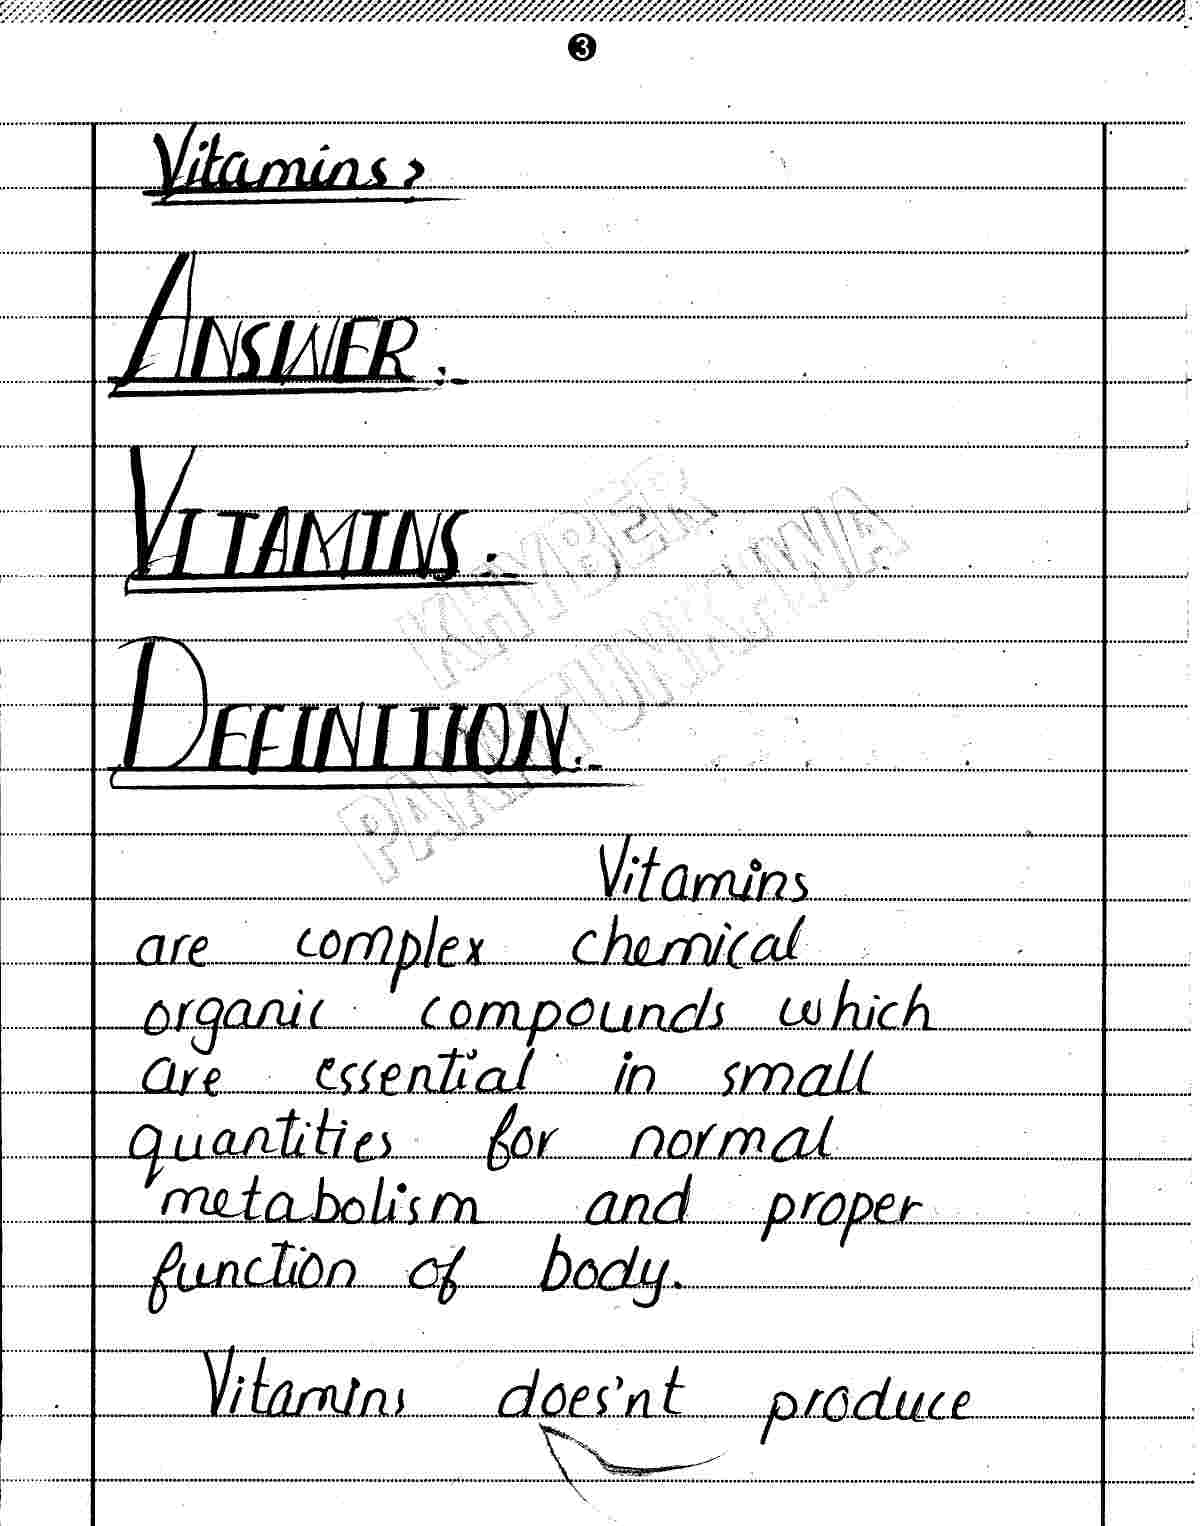 3
Vitamins?
ANSWER:-
VITAMINS:-
KHYBER
PAKHTUNKHWA
DEFINITION:-
Vitamins
are complex chemical
organic compounds which
are essential in small
quantities for normal
metabolism and proper
function of body.
Vitamins does'nt produce